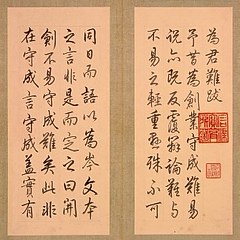 為君難跋
予昔為創業守成難易
說亦既反覆辯論難与
不易之輕重懸殊不可
同日而語以為岑文本
之言非是而定之曰開
創不易守成難矣此非
在守成言守成蓋實有